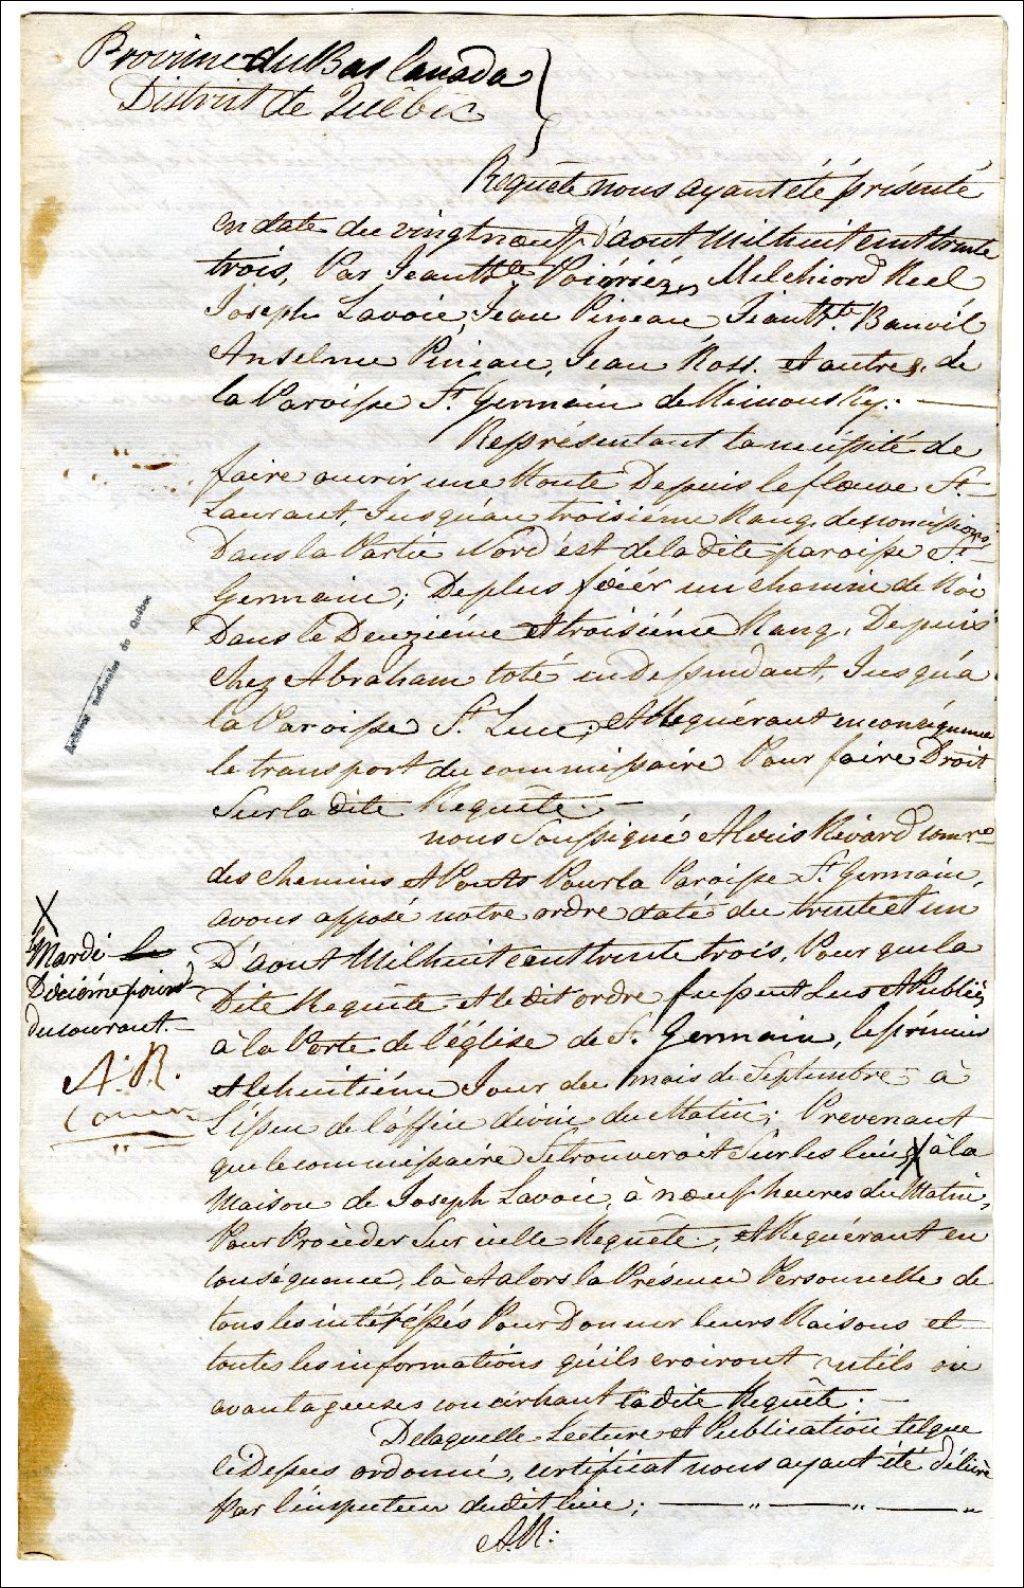 Province du Bas Canada
District de Québic
Requête nous ayant été présenté
en date du vingt nœuf D'aout Milhuit cent trente
trois, Par Jean Bte Poiérièz, Melchiord Reel
Joseph Lavoie, Jean Pineau, Jean Bte Banvil
Anselme Pineau, Jean Ross. et autres. de
la Paroisse St Germain de Rimousky.
Représentant la nécessité de
faire ouvrir une Route Depuis le flœuve St
Laurant, Jusqu'au troisiéme Rang, des concessions,
Dans la Partie Nord'est de la dite paroisse St
Germain; De plus fixér un chemin de Roi
Dans le Deuziéme et troisiéme Rang, Depuis
chez Abraham toté en dessendant, Jusqu'a
la Paroisse St Luce; et Requérant en conséquence
le transport du commissaire Pour faire Droit
Sur la dite Requête.
nous Soussigné Alexis Rivard comre
des chemins et Ponts Pour la Paroisse St Germain,
avons apposé notre ordre daté du trente et un
D'aout Milhuit cent trente trois, Pour que la
Dite Requête et le dit ordre fussent Lus et Publiés
à la Porte de l'église de St Germain, le prémier
et le huitiéme Jour du mois de Septembre à
L'issue de l'office divin du Matin; Prevenant
que le commissaire Se trouveroit Sur les lieux X à la
X
le Mardi
Dixiéme jour
du courant.
A. R.
Maison de Joseph Lavoie, à nœuf heures du Matin,
Pour Procéder Sur icelle Requête; et Requérant en
conséquence, là et alors la Présence Personnelle de
tous les intéréssés Pour Donner leurs Raisons et
toutes les informations qu'ils croiront utils ou
avantageuses concernant la dite Requête.
De laquelle Lecture et Publication tel que
ci Dessus ordonné, certificat nous ayant été délivré
Par l'inspecteur du dit lieu;
A.R:
Archives nationales du Québec